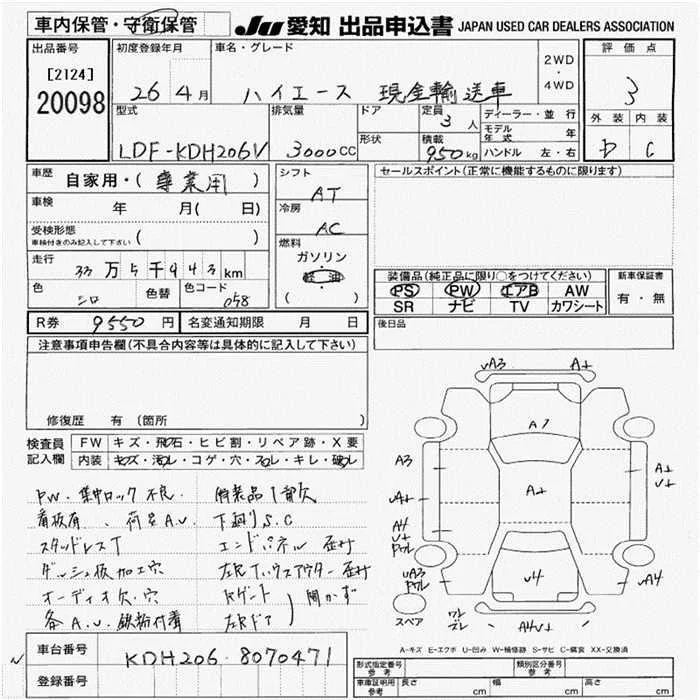 車内保管・守衛保管
JU 愛知 出品申込書 JAPAN USED CAR DEALERS ASSOCIATION
出品番号
[2124]
20098
初度登録年月
26 4月
車名・グレード
ハイエース 現金輸送車
2WD
・
4WD
評価点
3
外装 内装
D C
型式
LDF-KDH206V
排気量
3000CC
ドア
形状
定員
3人
積載
950kg
ディーラー・並行
モデル年式 年
ハンドル 左・右
車歴
自家用・(専業用)
車検 年 月(日)
受検形態
車検付きのみ記入して下さい ( )
走行
33万5千943km
色 シロ
色替
色コード 058
シフト
AT
冷房
AC
燃料
ガソリン
軽油
( )
セールスポイント(正常に機能するものに限ります)
装備品(純正品に限り○をつけてください)
PS PW エアB AW
SR ナビ TV カワシート
新車保証書
有・無
R券 9550円
名変通知期限 月 日
後日品
注意事項申告欄(不具合内容等は具体的に記入して下さい)
修復歴 有 (箇所 )
検査員記入欄
FW キズ・飛石・ヒビ割・リペア跡・X要
内装 キズ・汚レ・コゲ・穴・スレ・キレ・破レ
PW・集中ロック不良
看板有、荷室A.U.
スタッドレスT
ダッシュ板加工穴
オーディオ欠・穴
各A.U.鉄粉付着
下廻りS.C
エンドパネル歪み
左R Tハウスアウター歪み
Rゲート
左Rドア
開かず
UA3
A+
A7
A3
A+
U+
UA+
A+
A4
U+
UA3
U4
UA4
A4U+
スペア
A-キズ E-エクボ U-凹み W-補修跡 S-サビ C-腐食 XX-交換済
車台番号
KDH206-8070471
登録番号
形式指定番号
参考
類別区分番号
車庫証明用
参考
長さ cm
幅 cm
高さ cm